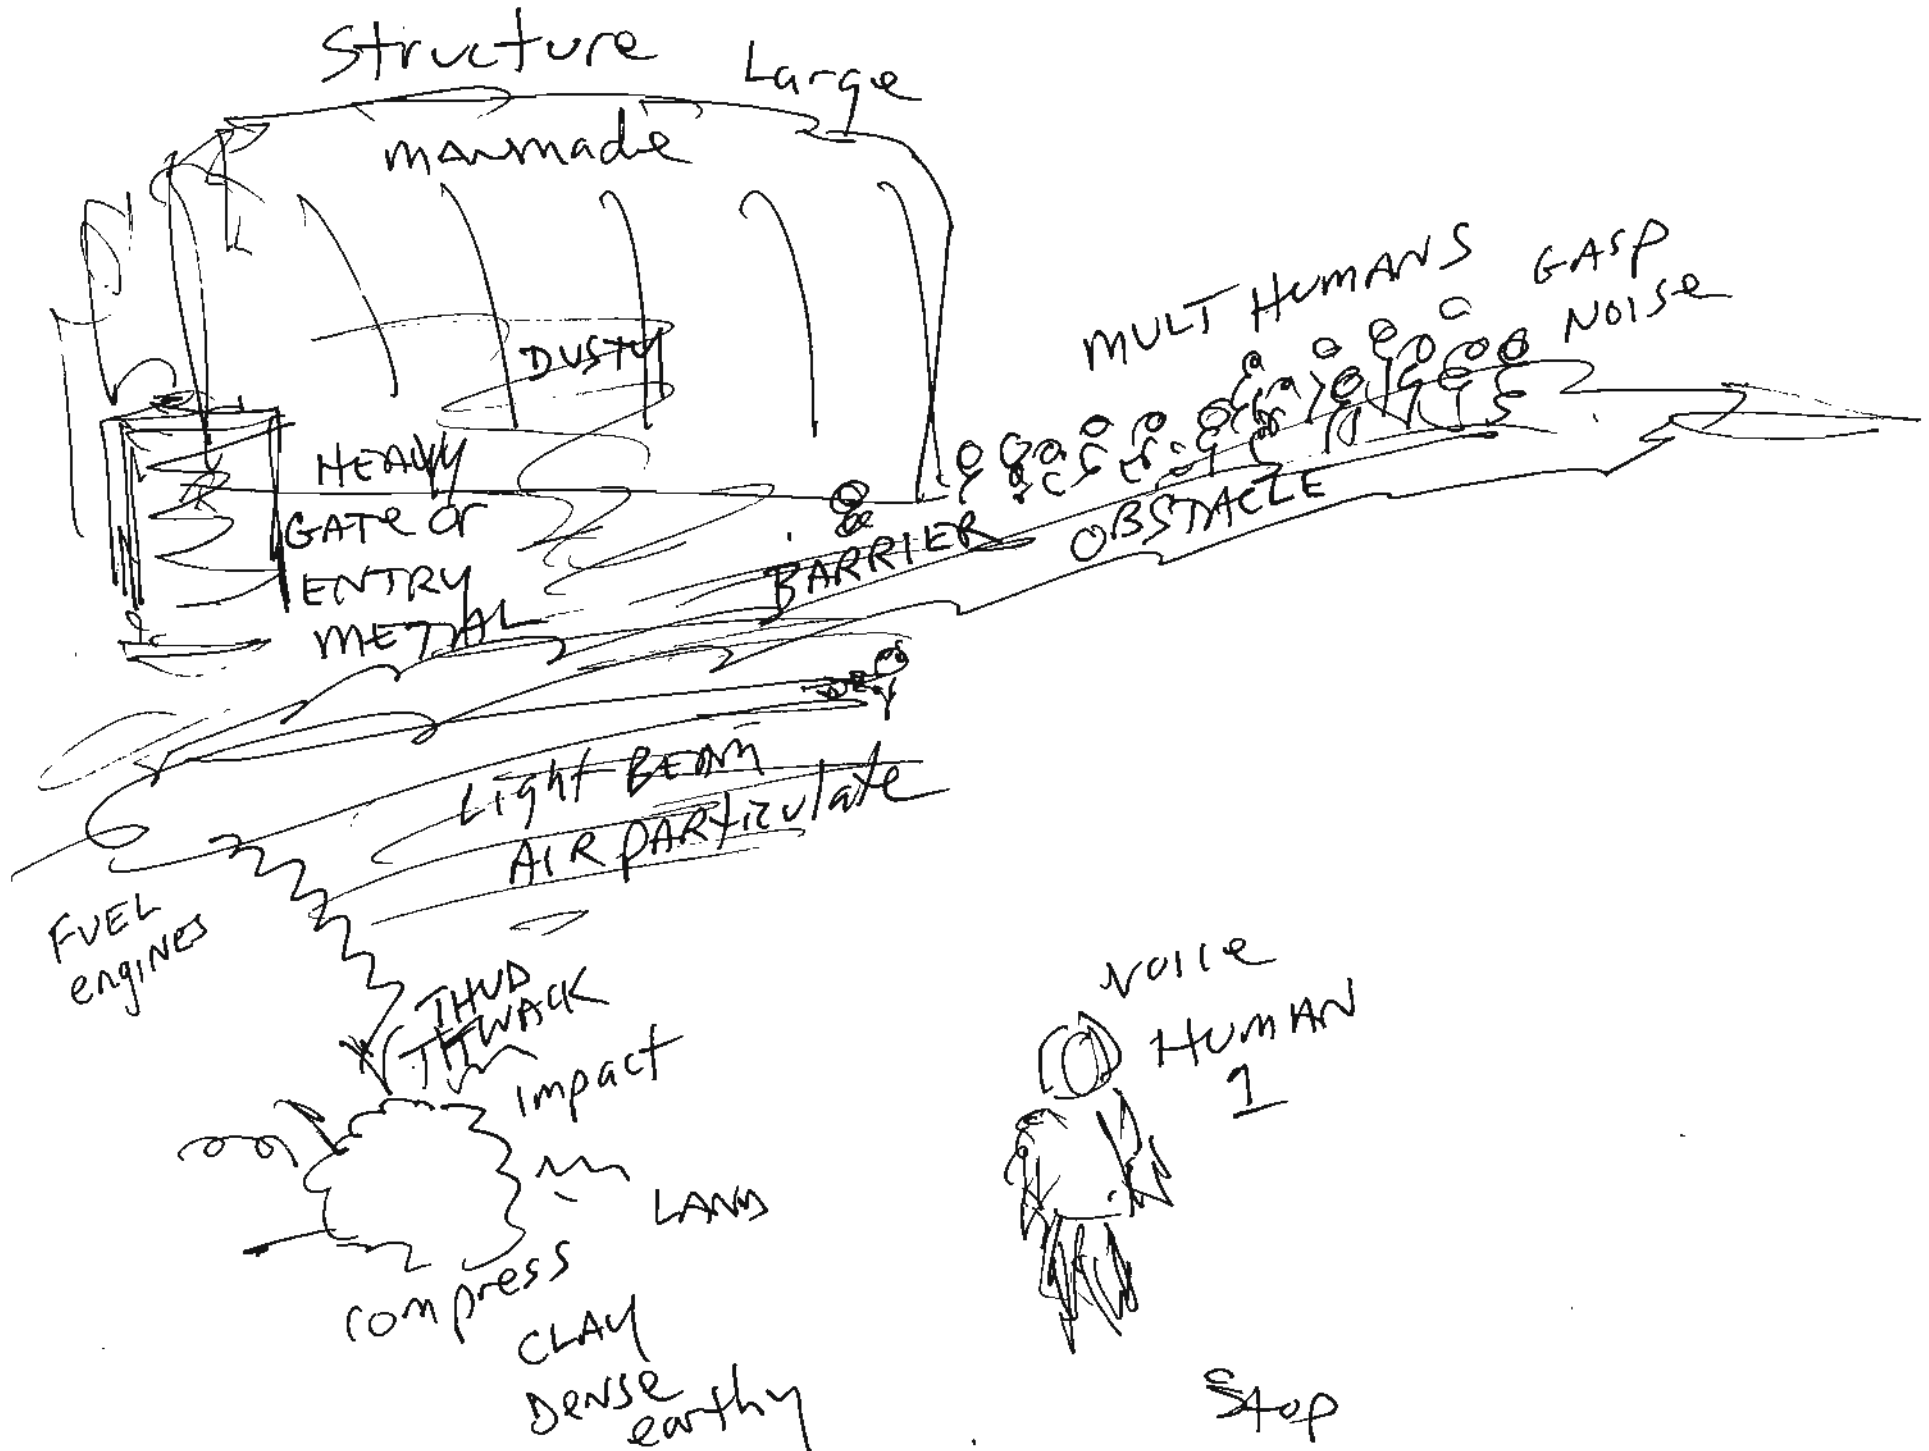 Structure
Large
manmade
DUSTY
MULT HUMANS
GASP
NOISE
HEAVY
GATE or
ENTRY
METAL
BARRIER
OBSTACLE
Light BEAM
AIR PARTiculate
FUEL
engiNes
THUD
THWACK
impact
LAND
compress
CLAY
Dense
earthy
HUMAN
1
Stop